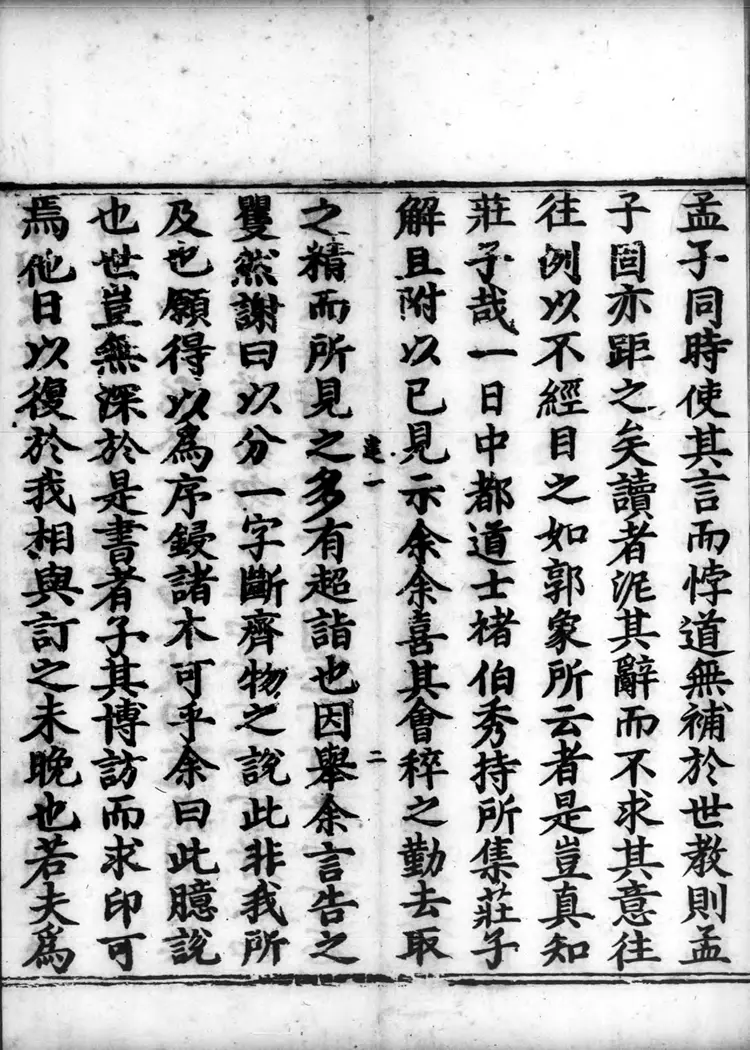 孟子同時使其言而悖道無補於世教則孟
子固亦距之矣讀者泥其辭而不求其意往
往例以不經目之如郭象所云者是豈真知
莊子哉一日中都道士褚伯秀持所集莊子
解且附以已見示余余喜其會稡之勤去取
之精而所見之多有超詣也因舉余言告之
矍然謝曰以分一字斷齊物之說此非我所
及也願得以為序鋟諸木可乎余曰此臆說
也世豈無深於是書者子其博訪而求印可
焉他日以復於我相與訂之未晚也若夫為